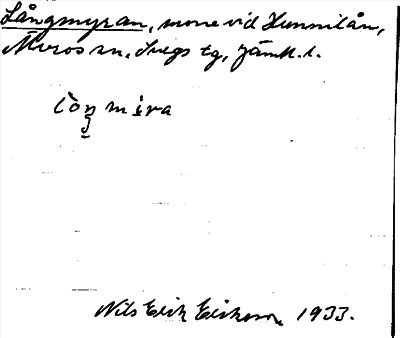 Långmyran, mose vid Hunnilån,
Älvros sn. Svegs tg, Jämtl. l.
lòŋmira
Nils Erik Eriksson 1933.